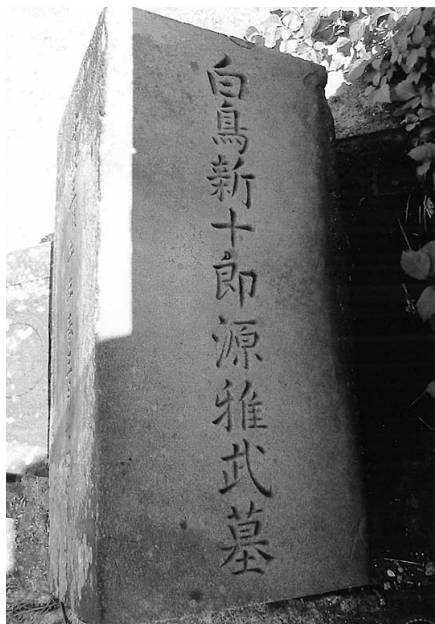 白鳥新十郎源雅武墓